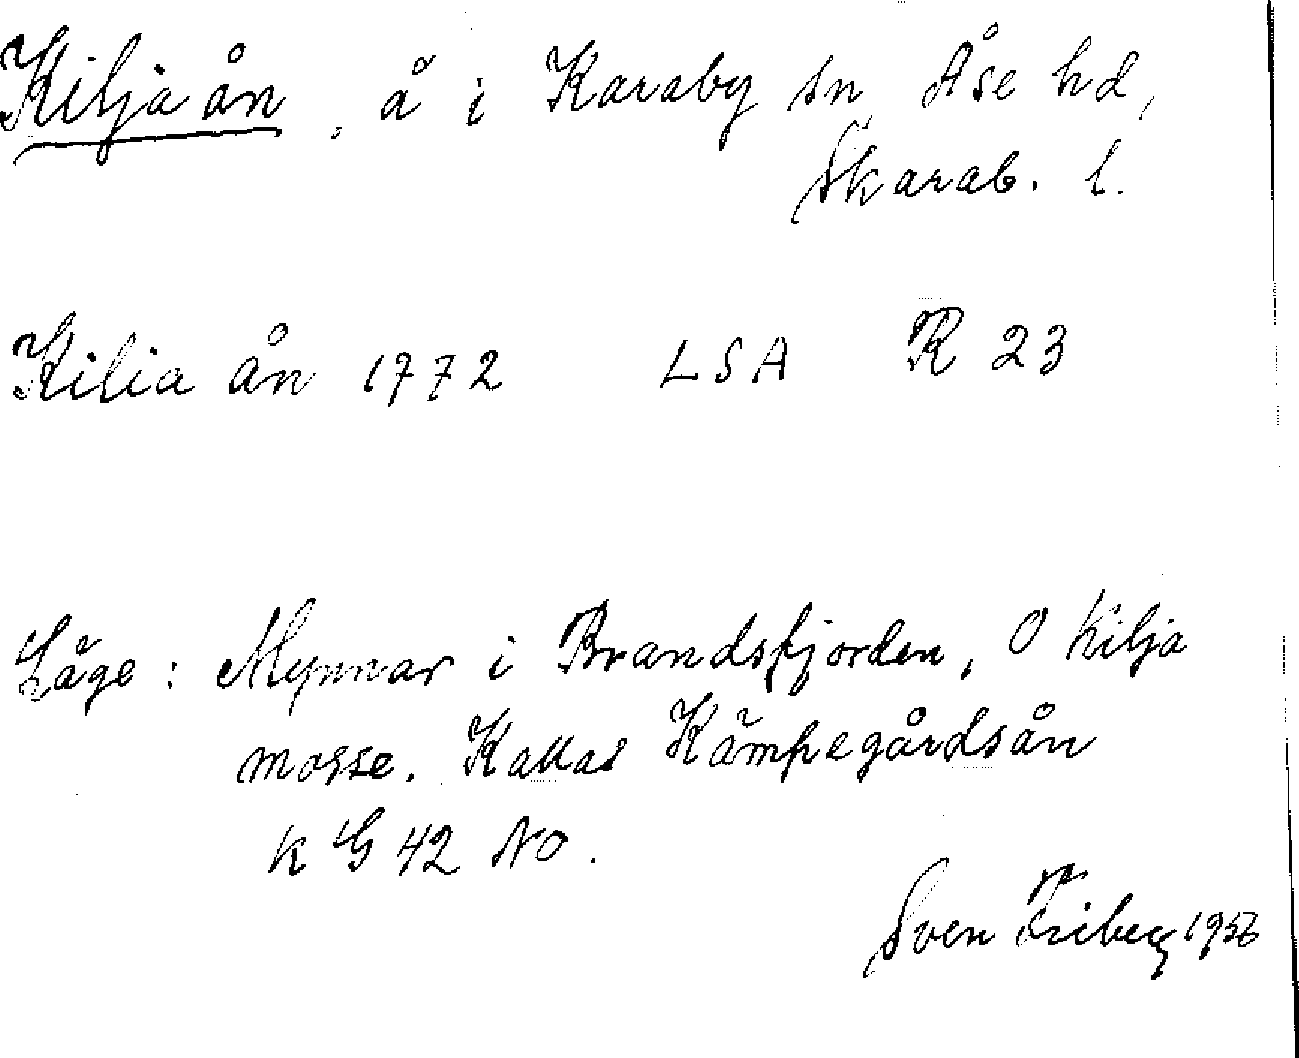 Kilja ån, å i Karaby sn Åse hd,
Skarab. l.
Kilia ån 1772 LSA R 23
Läge: Mynnar i Brandsfjorden, O Kilja
mosse. Kallas Kämpegårdsån
k G 42 NO.
Sven Friberg 1956